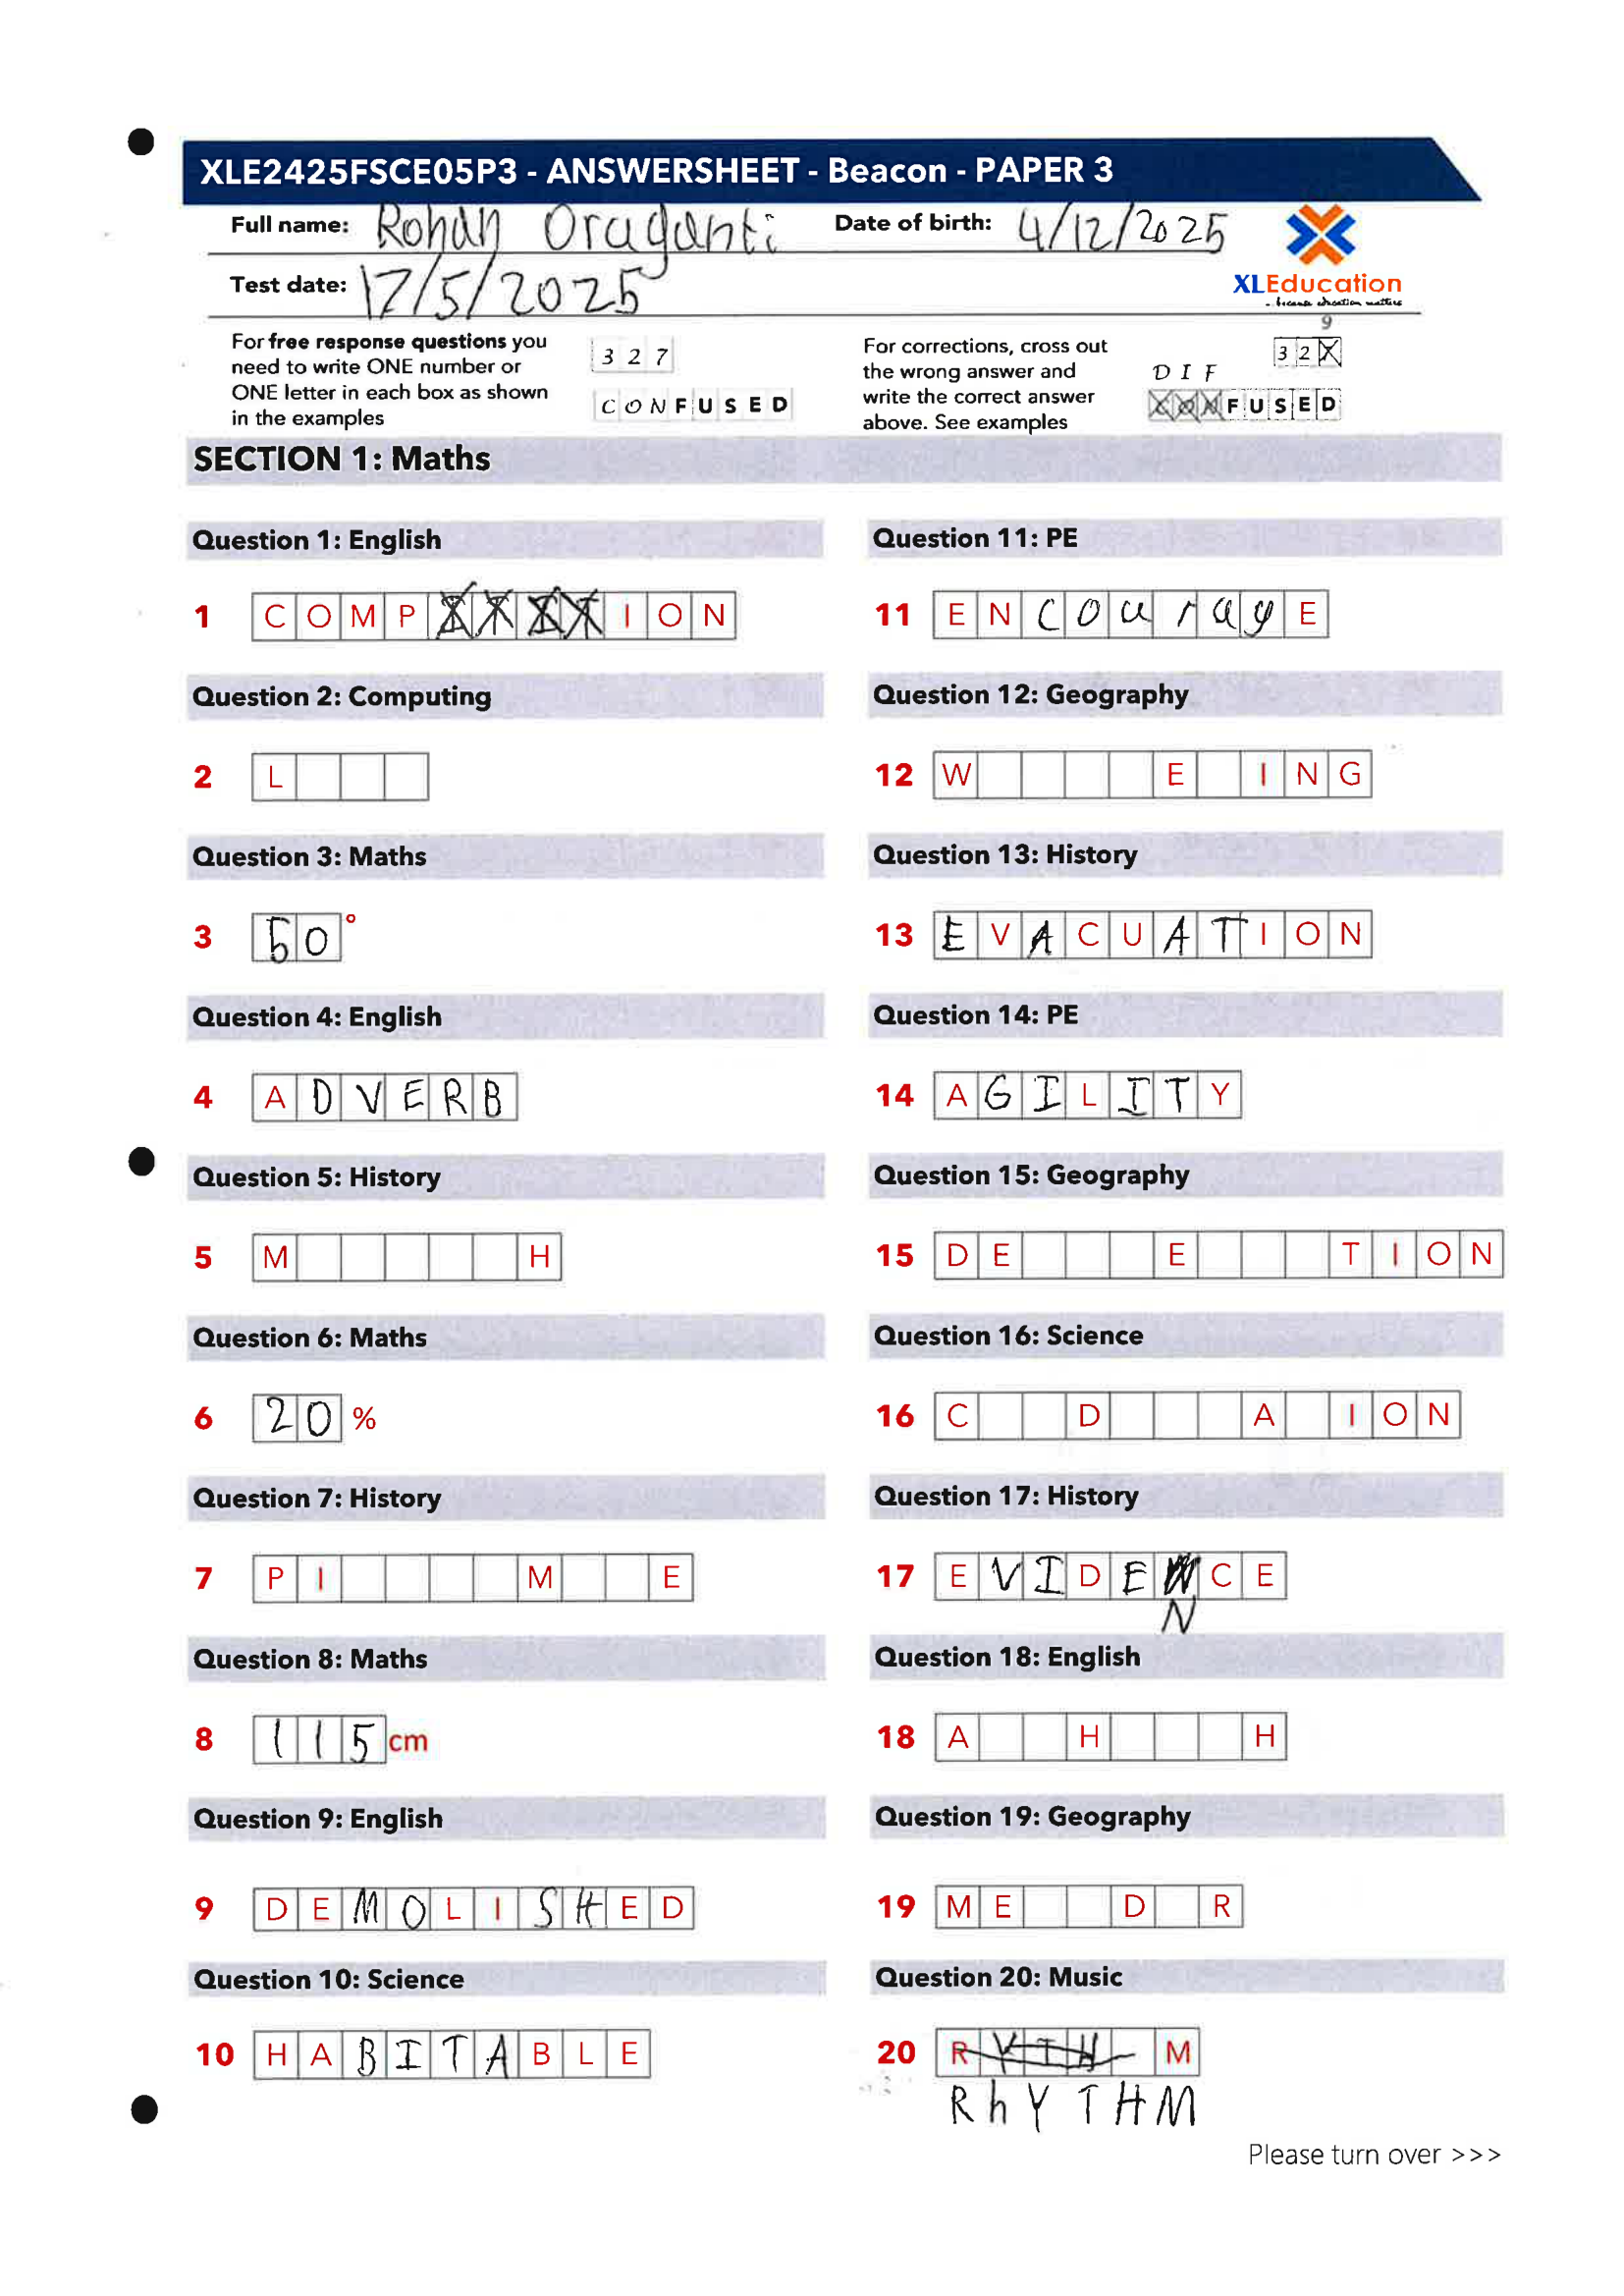 XLE2425FSCE05P3 - ANSWERSHEET - Beacon - PAPER 3
Full name: Rohan Oraganti Date of birth: 4/12/2025
Test date: 17/5/2025
XLEducation
- because education matters
For free response questions you
need to write ONE number or
ONE letter in each box as shown
in the examples
3 2 7
C O N F U S E D
For corrections, cross out
the wrong answer and
write the correct answer
above. See examples
9
3 2 X
D I F
F U S E D
SECTION 1: Maths
Question 1: English
1 C O M P I O N
Question 2: Computing
2 L
Question 3: Maths
3 50°
Question 4: English
4 A D V E R B
Question 5: History
5 M H
Question 6: Maths
6 20 %
Question 7: History
7 P I M E
Question 8: Maths
8 115 cm
Question 9: English
9 D E M O L I S H E D
Question 10: Science
10 H A B I T A B L E
Question 11: PE
11 E N C o u r a g E
Question 12: Geography
12 W E I N G
Question 13: History
13 E V A C U A T I O N
Question 14: PE
14 A G I L I T Y
Question 15: Geography
15 D E E T I O N
Question 16: Science
16 C D A I O N
Question 17: History
17 E V I D E N C E
N
Question 18: English
18 A H H
Question 19: Geography
19 M E D R
Question 20: Music
20 R Y T H M
R h Y T H M
Please turn over >>>